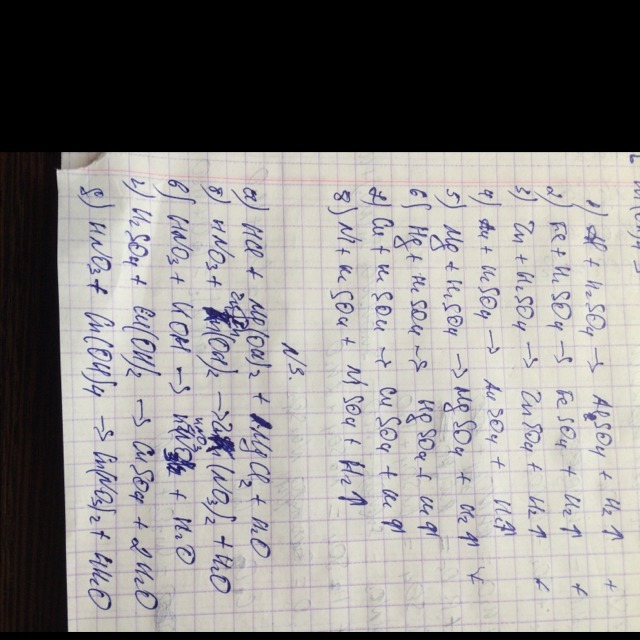 1) Al + H2SO4 → AlSO4 + H2↑ +
2) Fe + H2SO4 → FeSO4 + H2↑ +
3) Zn + H2SO4 → ZnSO4 + H2↑ +
4) Au + H2SO4 → AuSO4 + H2↑
5) Mg + H2SO4 → MgSO4 + H2↑ +
6) Hg + H2SO4 → HgSO4 + H2↑
7) Cu + H2SO4 → CuSO4 + H2↑
8) Ni + H2SO4 + NiSO4 + H2↑
N3.
а) HCl + Mg(OH)2 + MgCl2 + H2O
б) HNO3 + (OH)2 → (NO3)2 + H2O
в) HNO3 + KOH → + H2O
г) H2SO4 + Cu(OH)2 → CuSO4 + 2H2O
HNO3 + Cu(OH)4 → Cu(NO3)2 + 4H2O